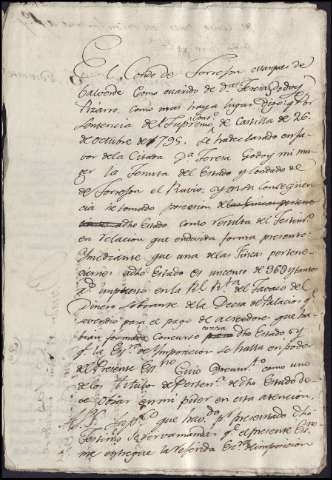 El Conde de Torrejon marques de
Valverde como marido de Dª Teresa Godoy
Pizarro, como mas haya lugar digo: q. por
Sentencia del Supremo Cons. de Castilla de 26
de octubre de 1795. se ha declarado en fa-
vor de la Citada Dª Teresa Godoy mi mu-
ger la Tenuta del Estado y Condado
de Torrejon el Rubio, y en su conseqüen-
cia he tomado posesion
dho Estado como resulta del Testim.
en relacion que en devida forma presento:
Ymediante que una de las fincas pertene-
cientes a dho Estado es un censo de 960 y tantos
impuesto en la del Tabaco del
Dinero sobrante de la Decia de Palacio q.
procedio para el pago de acreedores que ha-
bian formado Concurso dho Estado y
q. la Es.ra de Ymposicion se halla en poder
del presente Ess.no como uno
de los Titulos de Perten.a de dho Estado de-
ve obrar en mi poder en esta atencion.
A V. Sup.co que havido por presentado dho
testimo. se sirva mandar q. el presente Ess.no
me entregue la referida Es.ra de imposicion